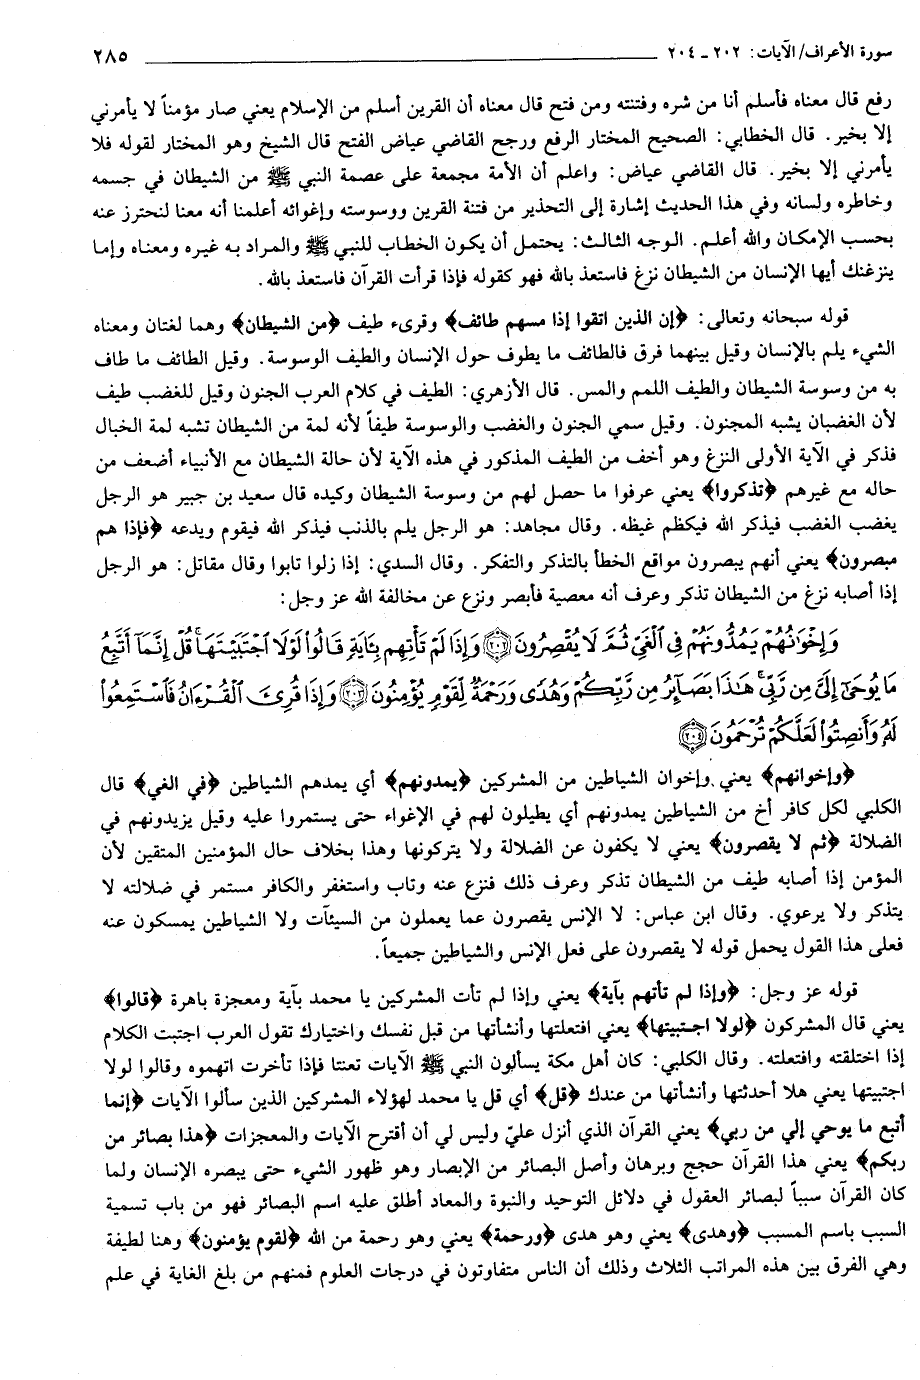 سورة الأعراف/ الآيات: ٢٠٢ ـ ٢٠٤ ٢٨٥
رفع قال معناه فأسلم أنا من شره وفتنته ومن فتح قال معناه أن القرين أسلم من الإسلام يعني صار مؤمناً لا يأمرني
إلا بخير. قال الخطابي: الصحيح المختار الرفع ورجح القاضي عياض الفتح قال الشيخ وهو المختار لقوله فلا
يأمرني إلا بخير. قال القاضي عياض: واعلم أن الأمة مجمعة على عصمة النبي ﷺ من الشيطان في جسمه
وخاطره ولسانه وفي هذا الحديث إشارة إلى التحذير من فتنة القرين ووسوسته وإغوائه أعلمنا أنه معنا لنحترز عنه
بحسب الإمكان والله أعلم. الوجه الثالث: يحتمل أن يكون الخطاب للنبي ﷺ والمراد به غيره ومعناه وإما
ينزغنك أيها الإنسان من الشيطان نزغ فاستعذ بالله فهو كقوله فإذا قرأت القرآن فاستعذ بالله.
قوله سبحانه وتعالى: ﴿إن الذين اتقوا إذا مسهم طائف﴾ وقرىء طيف ﴿من الشيطان﴾ وهما لغتان ومعناه
الشيء يلم بالإنسان وقيل بينهما فرق فالطائف ما يطوف حول الإنسان والطيف الوسوسة. وقيل الطائف ما طاف
به من وسوسة الشيطان والطيف اللمم والمس. قال الأزهري: الطيف في كلام العرب الجنون وقيل للغضب طيف
لأن الغضبان يشبه المجنون. وقيل سمي الجنون والغضب والوسوسة طيفاً لأنه لمة من الشيطان تشبه لمة الخبال
فذكر في الآية الأولى النزغ وهو أخف من الطيف المذكور في هذه الآية لأن حالة الشيطان مع الأنبياء أضعف من
حاله مع غيرهم ﴿تذكروا﴾ يعني عرفوا ما حصل لهم من وسوسة الشيطان وكيده قال سعيد بن جبير هو الرجل
يغضب الغضب فيذكر الله فيكظم غيظه. وقال مجاهد: هو الرجل يلم بالذنب فيذكر الله فيقوم ويدعه ﴿فإذا هم
مبصرون﴾ يعني أنهم يبصرون مواقع الخطأ بالتذكر والتفكر. وقال السدي: إذا زلوا تابوا وقال مقاتل: هو الرجل
إذا أصابه نزغ من الشيطان تذكر وعرف أنه معصية فأبصر ونزع عن مخالفة الله عز وجل:
وَإِخْوَانُهُمْ يَمُدُّونَهُمْ فِي ٱلْغَيِّ ثُمَّ لَا يُقْصِرُونَ ﴿٢٠٢﴾ وَإِذَا لَمْ تَأْتِهِم بِـَٔايَةٍ قَالُوا۟ لَوْلَا ٱجْتَبَيْتَهَا ۚ قُلْ إِنَّمَآ أَتَّبِعُ
مَا يُوحَىٰٓ إِلَىَّ مِن رَّبِّى ۚ هَـٰذَا بَصَآئِرُ مِن رَّبِّكُمْ وَهُدًى وَرَحْمَةٌ لِّقَوْمٍ يُؤْمِنُونَ ﴿٢٠٣﴾ وَإِذَا قُرِئَ ٱلْقُرْءَانُ فَٱسْتَمِعُوا۟
لَهُۥ وَأَنصِتُوا۟ لَعَلَّكُمْ تُرْحَمُونَ ﴿٢٠٤﴾
﴿وإخوانهم﴾ يعني وإخوان الشياطين من المشركين ﴿يمدونهم﴾ أي يمدهم الشياطين ﴿في الغي﴾ قال
الكلبي لكل كافر أخ من الشياطين يمدونهم أي يطيلون لهم في الإغواء حتى يستمروا عليه وقيل يزيدونهم في
الضلالة ﴿ثم لا يقصرون﴾ يعني لا يكفون عن الضلالة ولا يتركونها وهذا بخلاف حال المؤمنين المتقين لأن
المؤمن إذا أصابه طيف من الشيطان تذكر وعرف ذلك فنزع عنه وتاب واستغفر والكافر مستمر في ضلالته لا
يتذكر ولا يرعوي. وقال ابن عباس: لا الإنس يقصرون عما يعملون من السيئات ولا الشياطين يمسكون عنه
فعلى هذا القول يحمل قوله لا يقصرون على فعل الإنس والشياطين جميعاً.
قوله عز وجل: ﴿وإذا لم تأتهم بآية﴾ يعني وإذا لم تأت المشركين يا محمد بآية ومعجزة باهرة ﴿قالوا﴾
يعني قال المشركون ﴿لولا اجتبيتها﴾ يعني افتعلتها وأنشأتها من قبل نفسك واختيارك تقول العرب اجتبت الكلام
إذا اختلقته وافتعلته. وقال الكلبي: كان أهل مكة يسألون النبي ﷺ الآيات تعنتا فإذا تأخرت اتهموه وقالوا لولا
اجتبيتها يعني هلا أحدثتها وأنشأتها من عندك ﴿قل﴾ أي قل يا محمد لهؤلاء المشركين الذين سألوا الآيات ﴿إنما
أتبع ما يوحي إلي من ربي﴾ يعني القرآن الذي أنزل عليّ وليس لي أن أقترح الآيات والمعجزات ﴿هذا بصائر من
ربكم﴾ يعني هذا القرآن حجج وبرهان وأصل البصائر من الإبصار وهو ظهور الشيء حتى يبصره الإنسان ولما
كان القرآن سبباً لبصائر العقول في دلائل التوحيد والنبوة والمعاد أطلق عليه اسم البصائر فهو من باب تسمية
السبب باسم المسبب ﴿وهدى﴾ يعني وهو هدى ﴿ورحمة﴾ يعني وهو رحمة من الله ﴿لقوم يؤمنون﴾ وهنا لطيفة
وهي الفرق بين هذه المراتب الثلاث وذلك أن الناس متفاوتون في درجات العلوم فمنهم من بلغ الغاية في علم